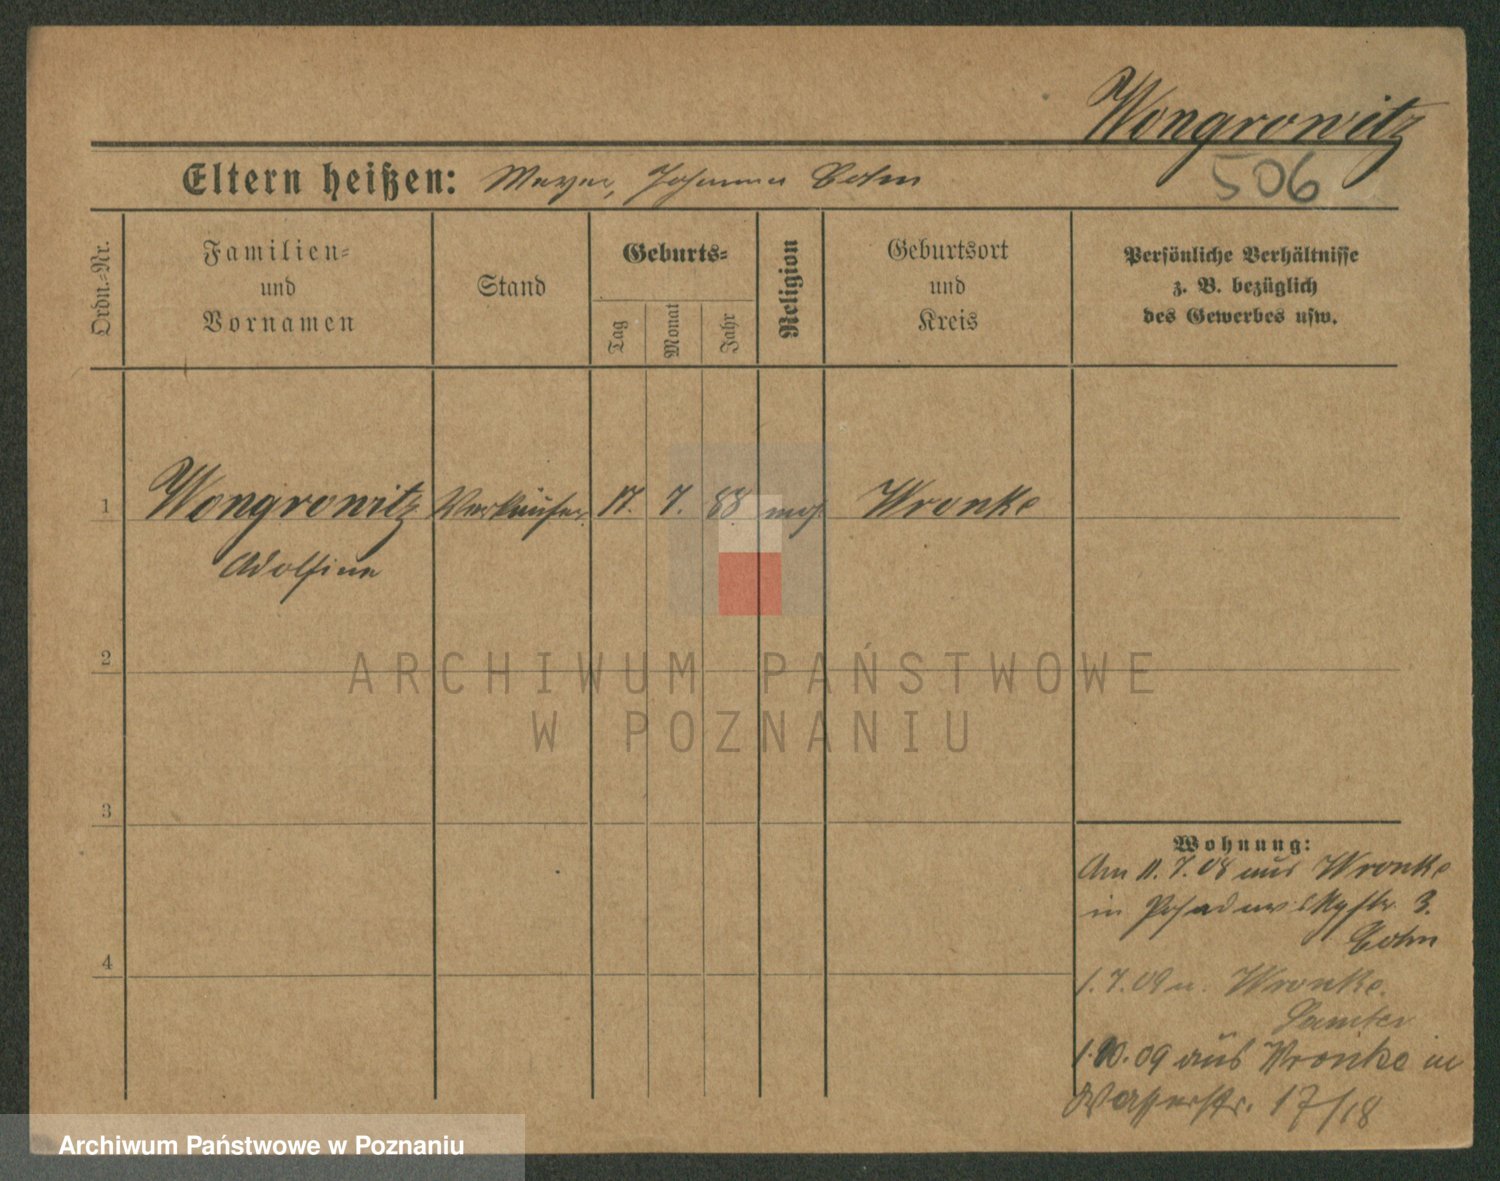 Wongrowitz
506
Eltern heißen: Meyer, Johanna Cohn
Ordn.-Nr.
Familien-
und
Vornamen
Stand
Geburts-
Tag
Monat
Jahr
Religion
Geburtsort
und
Kreis
Persönliche Verhältnisse
z. B. bezüglich
des Gewerbes usw.
1 Wongrowitz Verkäufer. 17. 7. 88 mos. Wronke
Adolfine
2
ARCHIWUM PAŃSTWOWE
W POZNANIU
3
Wohnung:
Am 11.7.08 aus Wronke
in 3.
Cohn
4
1.7.09 n. Wronke.
Samter
1.10.09 aus Wronke in
Wasserstr. 17/18
Archiwum Państwowe w Poznaniu